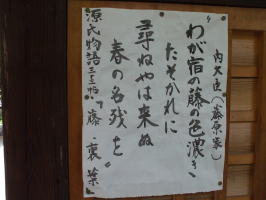 内大臣(藤原家)
"わが宿の藤の色濃き
たそかれに
尋ねやは来ぬ
春の名残を"
源氏物語三三帖『藤裏葉』